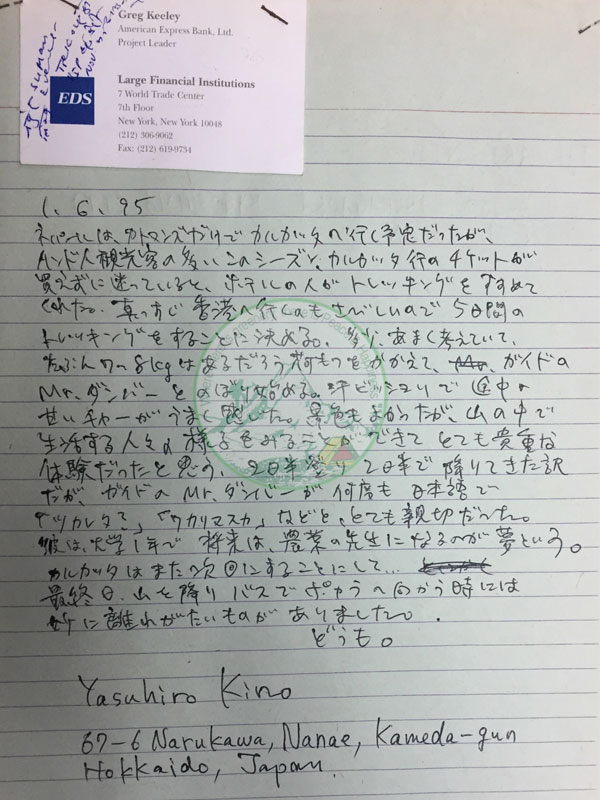 Greg Keeley
American Express Bank, Ltd.
Project Leader
EDS
Large Financial Institutions
7 World Trade Center
7th Floor
New York, New York 10048
(212) 306-9062
Fax: (212) 619-9734
1. 6. 95
ネパールは、カトマンズだけでカルカッタへ行く予定だったが、
インド人観光客の多いこのシーズン、カルカッタ行のチケットが
買えずに迷っていると、ホテルの人がトレッキングをすすめて
くれた。真っすぐ香港へ行くのもさびしいので5日間の
トレッキングをすることに決める。 あまく考えていて、
たぶん7〜8kgはあるだろう荷もつをかかえて、ガイドの
Mr.ダンバーとのぼり始める。汗ビッショリで途中の
せいチャーがうまく感じた。景色もよかったが、山の中で
生活する人々の様子をみることができてとても貴重な
体験だったと思う。2日半登り2日半で降りてきた訳
だが、ガイドのMr.ダンバーが何度も日本語で
「ツカレタ?」「ワカリマスカ」などと、とても親切だった。
彼は、大学1年で将来は、農業の先生になるのが夢という。
カルカッタはまた次回にすることにして…
最終日、山を降りバスでポカラへ向かう時には
妙に離れがたいものがありました。
どうも。
Yasuhiro Kino
67-6 Narukawa, Nanae, Kameda-gun
Hokkaido, Japan.